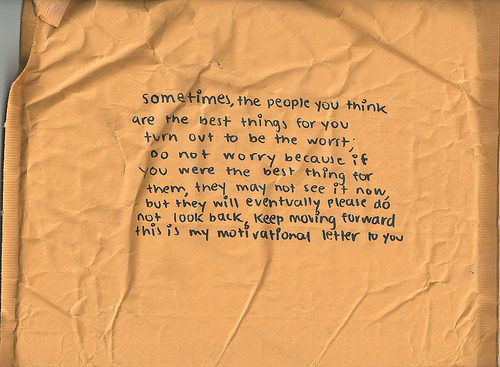 sometimes, the people you think
are the best things for you
turn out to be the worst;
Do not worry because if
you were the best thing for
them, they may not see it now,
but they will eventually please do
not look back, Keep moving forward
this is my motivational letter to you